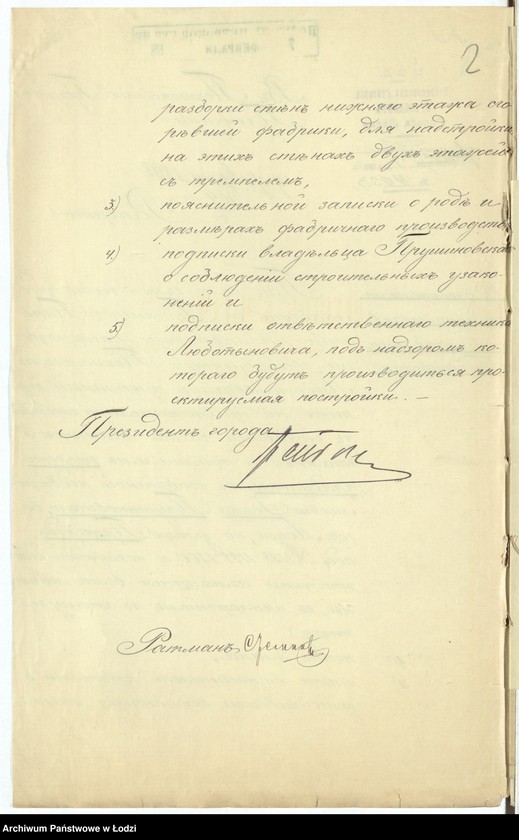 2
разборки стѣнъ нижняго этажа сго-
рѣвшей фабрики, для надстройки
на этихъ стѣнахъ двухъ этажей
съ тремпелемъ,
3) пояснительной записки о родѣ и
размѣрахъ фабричнаго производства
4) подписки владѣльца Прушиновскаго
о соблюденіи строительныхъ узако-
неній и
5) подписки отвѣтственнаго техника
Люботыновича, подъ надзоромъ ко-
тораго будутъ производиться про-
ектируемая постройки. —
Президентъ города
Ратманъ
Archiwum Państwowe w Łodzi